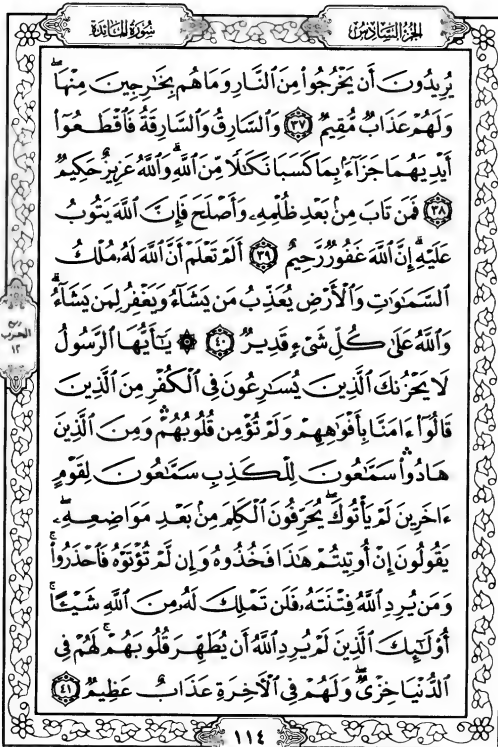 سُورَةُ المَائدة
الجُزءُ السَّادِسُ
يُرِيدُونَ أَن يَخۡرُجُواْ مِنَ ٱلنَّارِ وَمَا هُم بِخَٰرِجِينَ مِنۡهَاۖ
وَلَهُمۡ عَذَابٞ مُّقِيمٞ ٣٧ وَٱلسَّارِقُ وَٱلسَّارِقَةُ فَٱقۡطَعُوٓاْ
أَيۡدِيَهُمَا جَزَآءَۢ بِمَا كَسَبَا نَكَٰلٗا مِّنَ ٱللَّهِۗ وَٱللَّهُ عَزِيزٌ حَكِيمٞ
٣٨ فَمَن تَابَ مِنۢ بَعۡدِ ظُلۡمِهِۦ وَأَصۡلَحَ فَإِنَّ ٱللَّهَ يَتُوبُ
عَلَيۡهِۚ إِنَّ ٱللَّهَ غَفُورٞ رَّحِيمٌ ٣٩ أَلَمۡ تَعۡلَمۡ أَنَّ ٱللَّهَ لَهُۥ مُلۡكُ
ٱلسَّمَٰوَٰتِ وَٱلۡأَرۡضِ يُعَذِّبُ مَن يَشَآءُ وَيَغۡفِرُ لِمَن يَشَآءُۗ
وَٱللَّهُ عَلَىٰ كُلِّ شَيۡءٖ قَدِيرٞ ٤٠ ۞ يَٰٓأَيُّهَا ٱلرَّسُولُ
لَا يَحۡزُنكَ ٱلَّذِينَ يُسَٰرِعُونَ فِي ٱلۡكُفۡرِ مِنَ ٱلَّذِينَ
قَالُوٓاْ ءَامَنَّا بِأَفۡوَٰهِهِمۡ وَلَمۡ تُؤۡمِن قُلُوبُهُمۡۛ وَمِنَ ٱلَّذِينَ
هَادُواْۛ سَمَّٰعُونَ لِلۡكَذِبِ سَمَّٰعُونَ لِقَوۡمٍ
ءَاخَرِينَ لَمۡ يَأۡتُوكَۖ يُحَرِّفُونَ ٱلۡكَلِمَ مِنۢ بَعۡدِ مَوَاضِعِهِۦۖ
يَقُولُونَ إِنۡ أُوتِيتُمۡ هَٰذَا فَخُذُوهُ وَإِن لَّمۡ تُؤۡتَوۡهُ فَٱحۡذَرُواْۚ
وَمَن يُرِدِ ٱللَّهُ فِتۡنَتَهُۥ فَلَن تَمۡلِكَ لَهُۥ مِنَ ٱللَّهِ شَيۡـًٔاۚ
أُوْلَٰٓئِكَ ٱلَّذِينَ لَمۡ يُرِدِ ٱللَّهُ أَن يُطَهِّرَ قُلُوبَهُمۡۚ لَهُمۡ فِي
ٱلدُّنۡيَا خِزۡيٞۖ وَلَهُمۡ فِي ٱلۡأٓخِرَةِ عَذَابٌ عَظِيمٞ ٤١
ربع
الحزب
١٢
١١٤